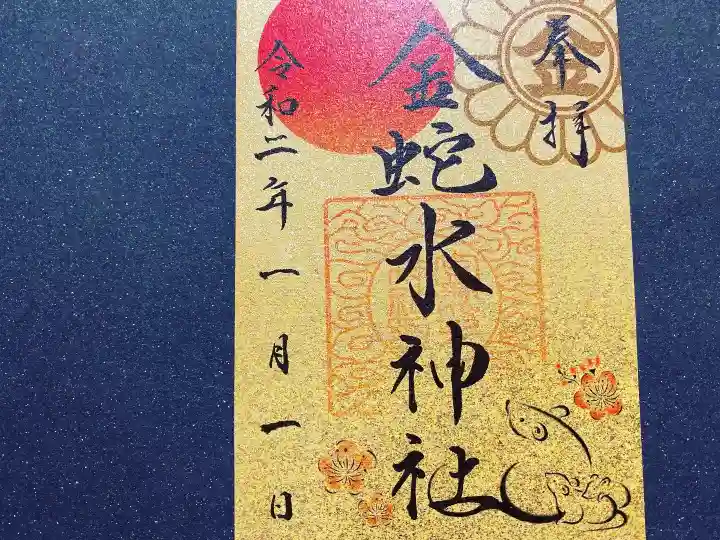 奉拝
金
金蛇水神社
令和二年一月一日